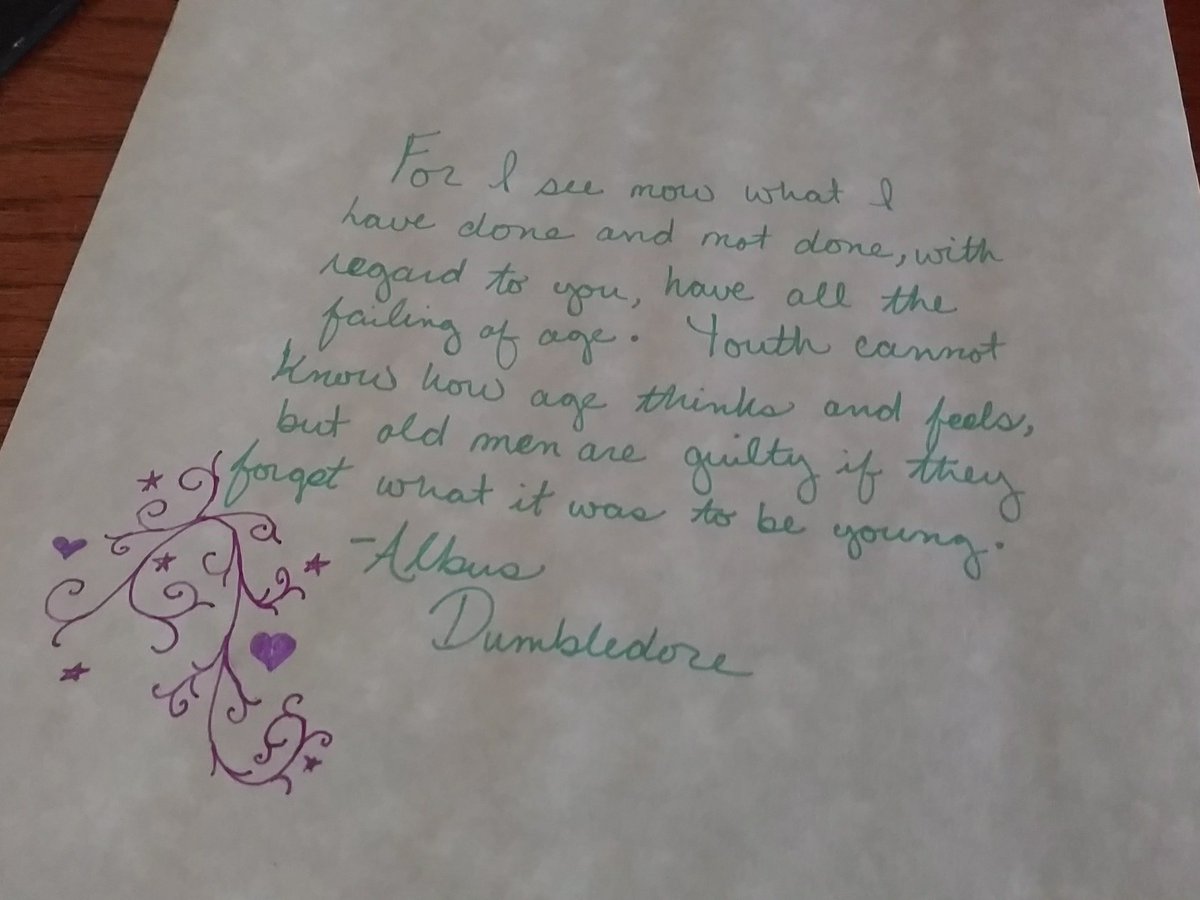 For I see now what I
have done and not done, with
regard to you, have all the
failing of age. Youth cannot
know how age thinks and feels,
but old men are guilty if they
forget what it was to be young.
-Albus
Dumbledore